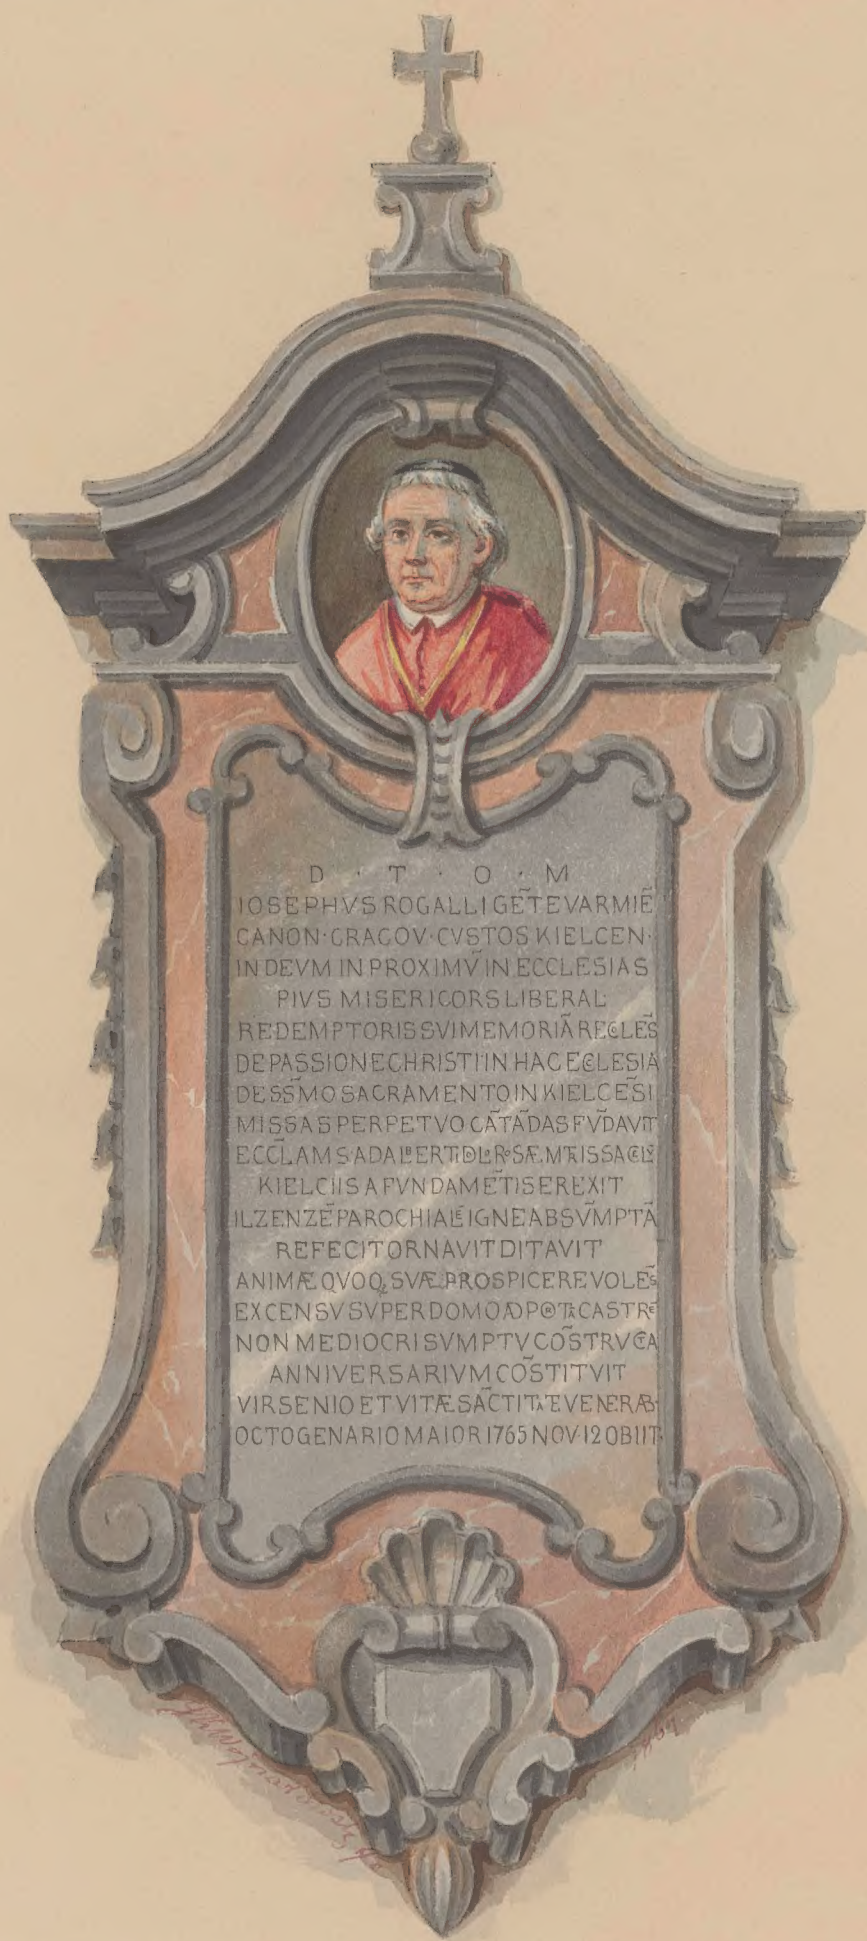 D · T · O · M
IOSEPHVS ROGALLI GẼTE VARMIẼ
CANON · CRACOV · CVSTOS KIELCEN ·
IN DEVM IN PROXIMṼ IN ECCLESIAS
PIVS MISERICORS LIBERAL
REDEMPTORIS SVI MEMORIÃ RECLES̃
DE PASSIONE CHRISTI IN HAC ECLESIA
DE SS̃MO SACRAMENTO IN KIELCẼSI
MISSAS PERPETVO CÃTÃDAS FṼDAVIT
ECCL̃AM S ADALBERTI
KIELCIIS A FVNDAMẼTIS EREXIT
ILZENZẼ PAROCHIALẼ IGNE ABSṼMPTÃ
REFECIT ORNAVIT DITAVIT
ANIMÆ QVOQ SVÆ PROSPICERE VOLES̃
EX CENSV SVPER DOMO AD CASTR
NON MEDIOCRI SVMPTV CÕSTRVCTA
ANNIVERSARIVM CÕSTITVIT
VIR SENIO ET VITÆ SÃCTITATE VENERAB
OCTOGENARIO MAIOR 1765 NOV · 12 OBIIT